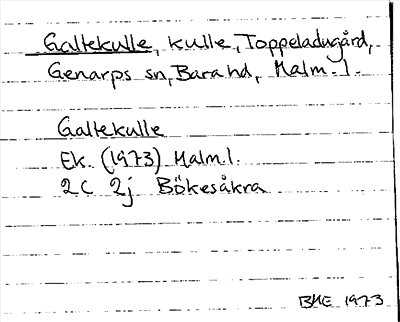 Galtekulle, kulle, Toppeladugård,
Genarps sn, Bara hd, Malm. l.
Galtekulle
Ek. (1973) Malm. l.
2C 2j Bökesåkra
BHE 1973